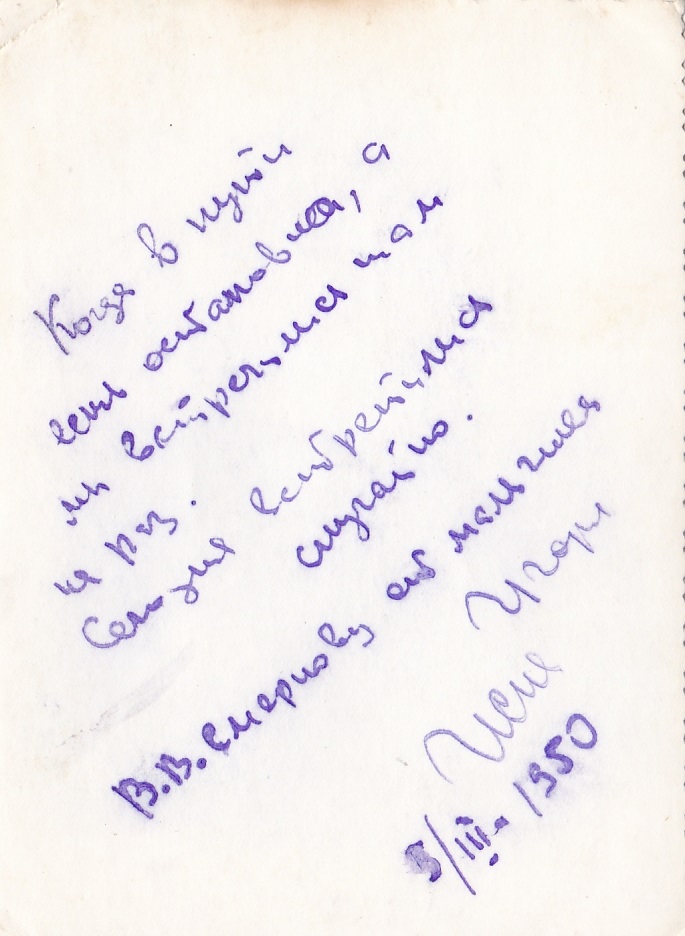 Когда в пути
есть остановка, а
мы встречимся там
не раз.
Сегодня встретимся
случайно.
В.В. Смернову от мальчишек
Игорь
Гена
5/III. 1950